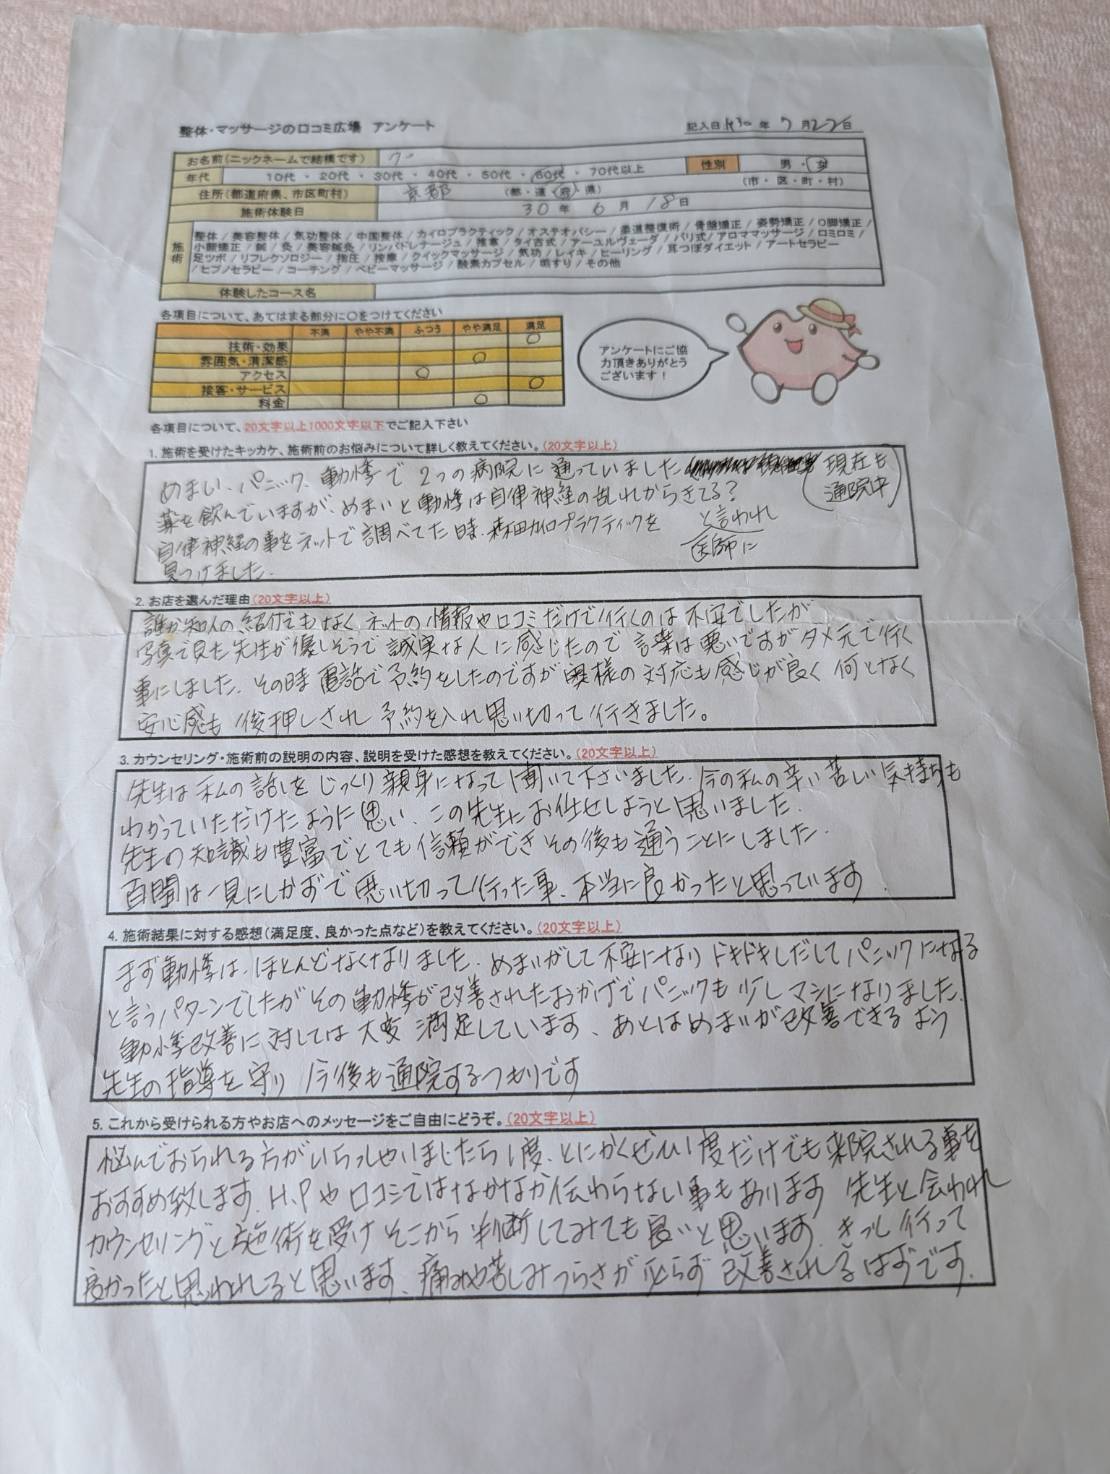 整体・マッサージの口コミ広場 アンケート
記入日 H30年 7月22日
お名前(ニックネームで結構です)
性別 男・女
年代 10代・20代・30代・40代・50代・60代・70代以上
住所(都道府県、市区町村) 京都 (都・道・府・県) (市・区・町・村)
施術体験日 30年 6月 18日
施術
整体 / 美容整体 / 気功整体 / 中国整体 / カイロプラクティック / オステオパシー / 柔道整復術 / 骨盤矯正 / 姿勢矯正 / O脚矯正 /
小顔矯正 / 鍼 / 灸 / 美容鍼灸 / リンパドレナージュ / 推拿 / タイ古式 / アーユルヴェーダ / バリ式 / アロママッサージ / ロミロミ /
足ツボ / リフレクソロジー / 指圧 / 按摩 / クイックマッサージ / 気功 / レイキ / ヒーリング / 耳つぼダイエット / アートセラピー
/ ヒプノセラピー / コーチング / ベビーマッサージ / 酸素カプセル / 唄すり / その他
体験したコース名
各項目について、あてはまる部分に○をつけてください
不満 やや不満 ふつう やや満足 満足
技術・効果 ○
雰囲気・清潔感 ○
アクセス ○
接客・サービス ○
料金 ○
アンケートにご協
力頂きありがとう
ございます!
各項目について、20文字以上1000文字以下でご記入下さい
1. 施術を受けたキッカケ、施術前のお悩みについて詳しく教えてください。(20文字以上)
めまい、パニック、動悸で2つの病院に通っていました(現在も通院中)
薬を飲んでいますが、めまいと動悸は自律神経の乱れからきてる?
と言われ
医師に
自律神経の事をネットで調べてた時、森田カイロプラクティックを
見つけました。
2. お店を選んだ理由(20文字以上)
誰か知人の紹介でもなく、ネットの情報や口コミだけで行くのは不安でしたが
写真で見た先生が優しそうで誠実な人に感じたので言葉は悪いですがダメ元で行く
事にしました。その時電話で予約をしたのですが奥様の対応も感じが良く何となく
安心感も後押しされ予約を入れ思い切って行きました。
3. カウンセリング・施術前の説明の内容、説明を受けた感想を教えてください。(20文字以上)
先生は私の話しをじっくり親身になって聞いて下さいました。今の私の辛い苦しい気持ちも
わかっていただけたように思い、この先生にお任せしようと思いました。
先生の知識も豊富でとても信頼ができその後も通うことにしました。
百聞は一見にしかずで思い切って行った事、本当に良かったと思っています。
4. 施術結果に対する感想(満足度、良かった点など)を教えてください。(20文字以上)
まず動悸は、ほとんどなくなりました。めまいがして不安になりドキドキしだしてパニックになる
と言うパターンでしたがその動悸が改善されたおかげでパニックも少しマシになりました。
動悸改善に対しては大変満足しています、あとはめまいが改善できるよう
先生の指導を守り今後も通院するつもりです
5. これから受けられる方やお店へのメッセージをご自由にどうぞ。(20文字以上)
悩んでおられる方がいらっしゃいましたら1度、とにかくぜひ1度だけでも来院される事を
おすすめ致します。H.Pや口コミではなかなか伝わらない事もあります 先生と会われ
カウンセリングと施術を受けそこから判断してみても良いと思います。きっと行って
良かったと思われると思います、痛みや苦しみつらさが必らず改善されるはずです。